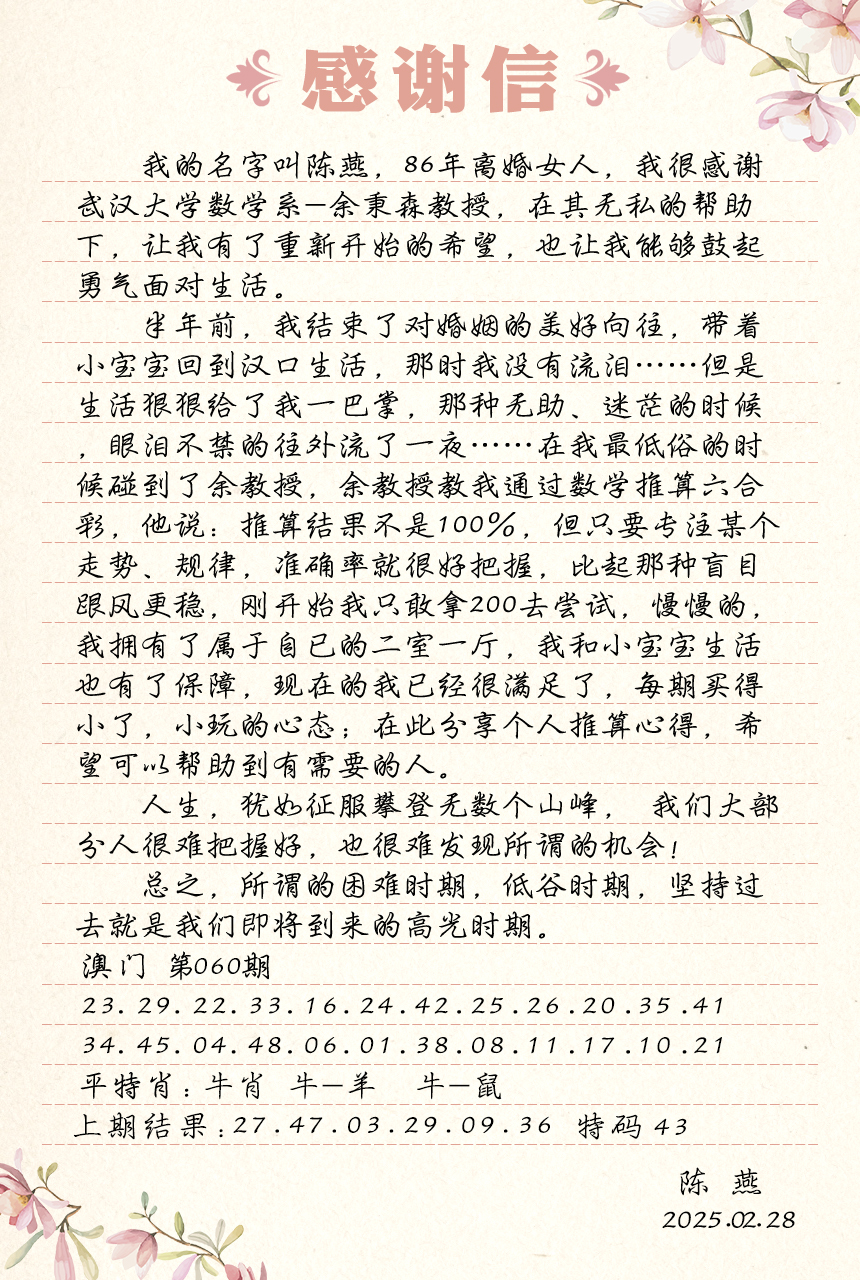 感谢信
我的名字叫陈燕，86年离婚女人，我很感谢
武汉大学数学系—余秉森教授，在其无私的帮助
下，让我有了重新开始的希望，也让我能够鼓起
勇气面对生活。
半年前，我结束了对婚姻的美好向往，带着
小宝宝回到汉口生活，那时我没有流泪……但是
生活狠狠给了我一巴掌，那种无助、迷茫的时候
，眼泪不禁的往外流了一夜……在我最低俗的时
候碰到了余教授，余教授教我通过数学推算六合
彩，他说：推算结果不是100%，但只要专注某个
走势、规律，准确率就很好把握，比起那种盲目
跟风更稳，刚开始我只敢拿200去尝试，慢慢的，
我拥有了属于自已的二室一厅，我和小宝宝生活
也有了保障，现在的我已经很满足了，每期买得
小了，小玩的心态；在此分享个人推算心得，希
望可以帮助到有需要的人。
人生，犹如征服攀登无数个山峰， 我们大部
分人很难把握好，也很难发现所谓的机会！
总之，所谓的困难时期，低谷时期，坚持过
去就是我们即将到来的高光时期。
澳门 第060期
23.29.22.33.16.24.42.25.26.20.35.41
34.45.04.48.06.01.38.08.11.17.10.21
平特肖：牛肖 牛—羊 牛—鼠
上期结果：27.47.03.29.09.36 特码 43
陈 燕
2025.02.28